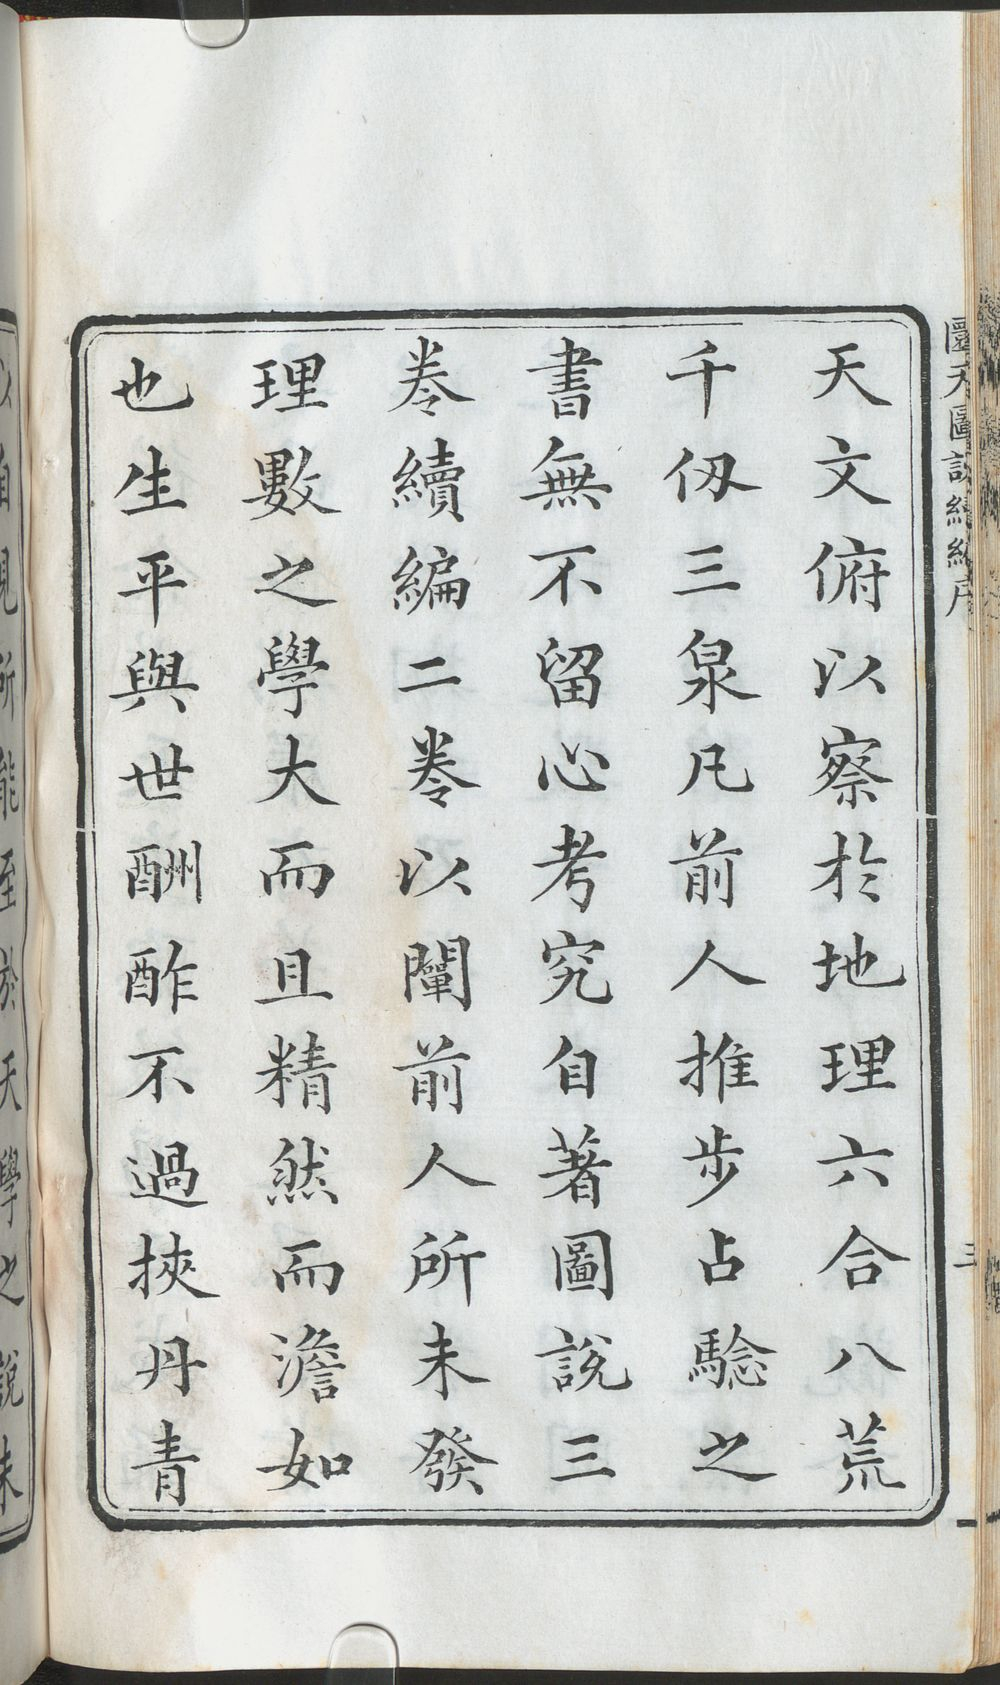 圜天圖說續編序
三
天文俯以察於地理六合八荒
千仭三泉凡前人推步占驗之
書無不留心考究自著圖說三
卷續編二卷以闡前人所未發
理數之學大而且精然而澹如
也生平與世酬酢不過挾丹青
所能至於天學之說未